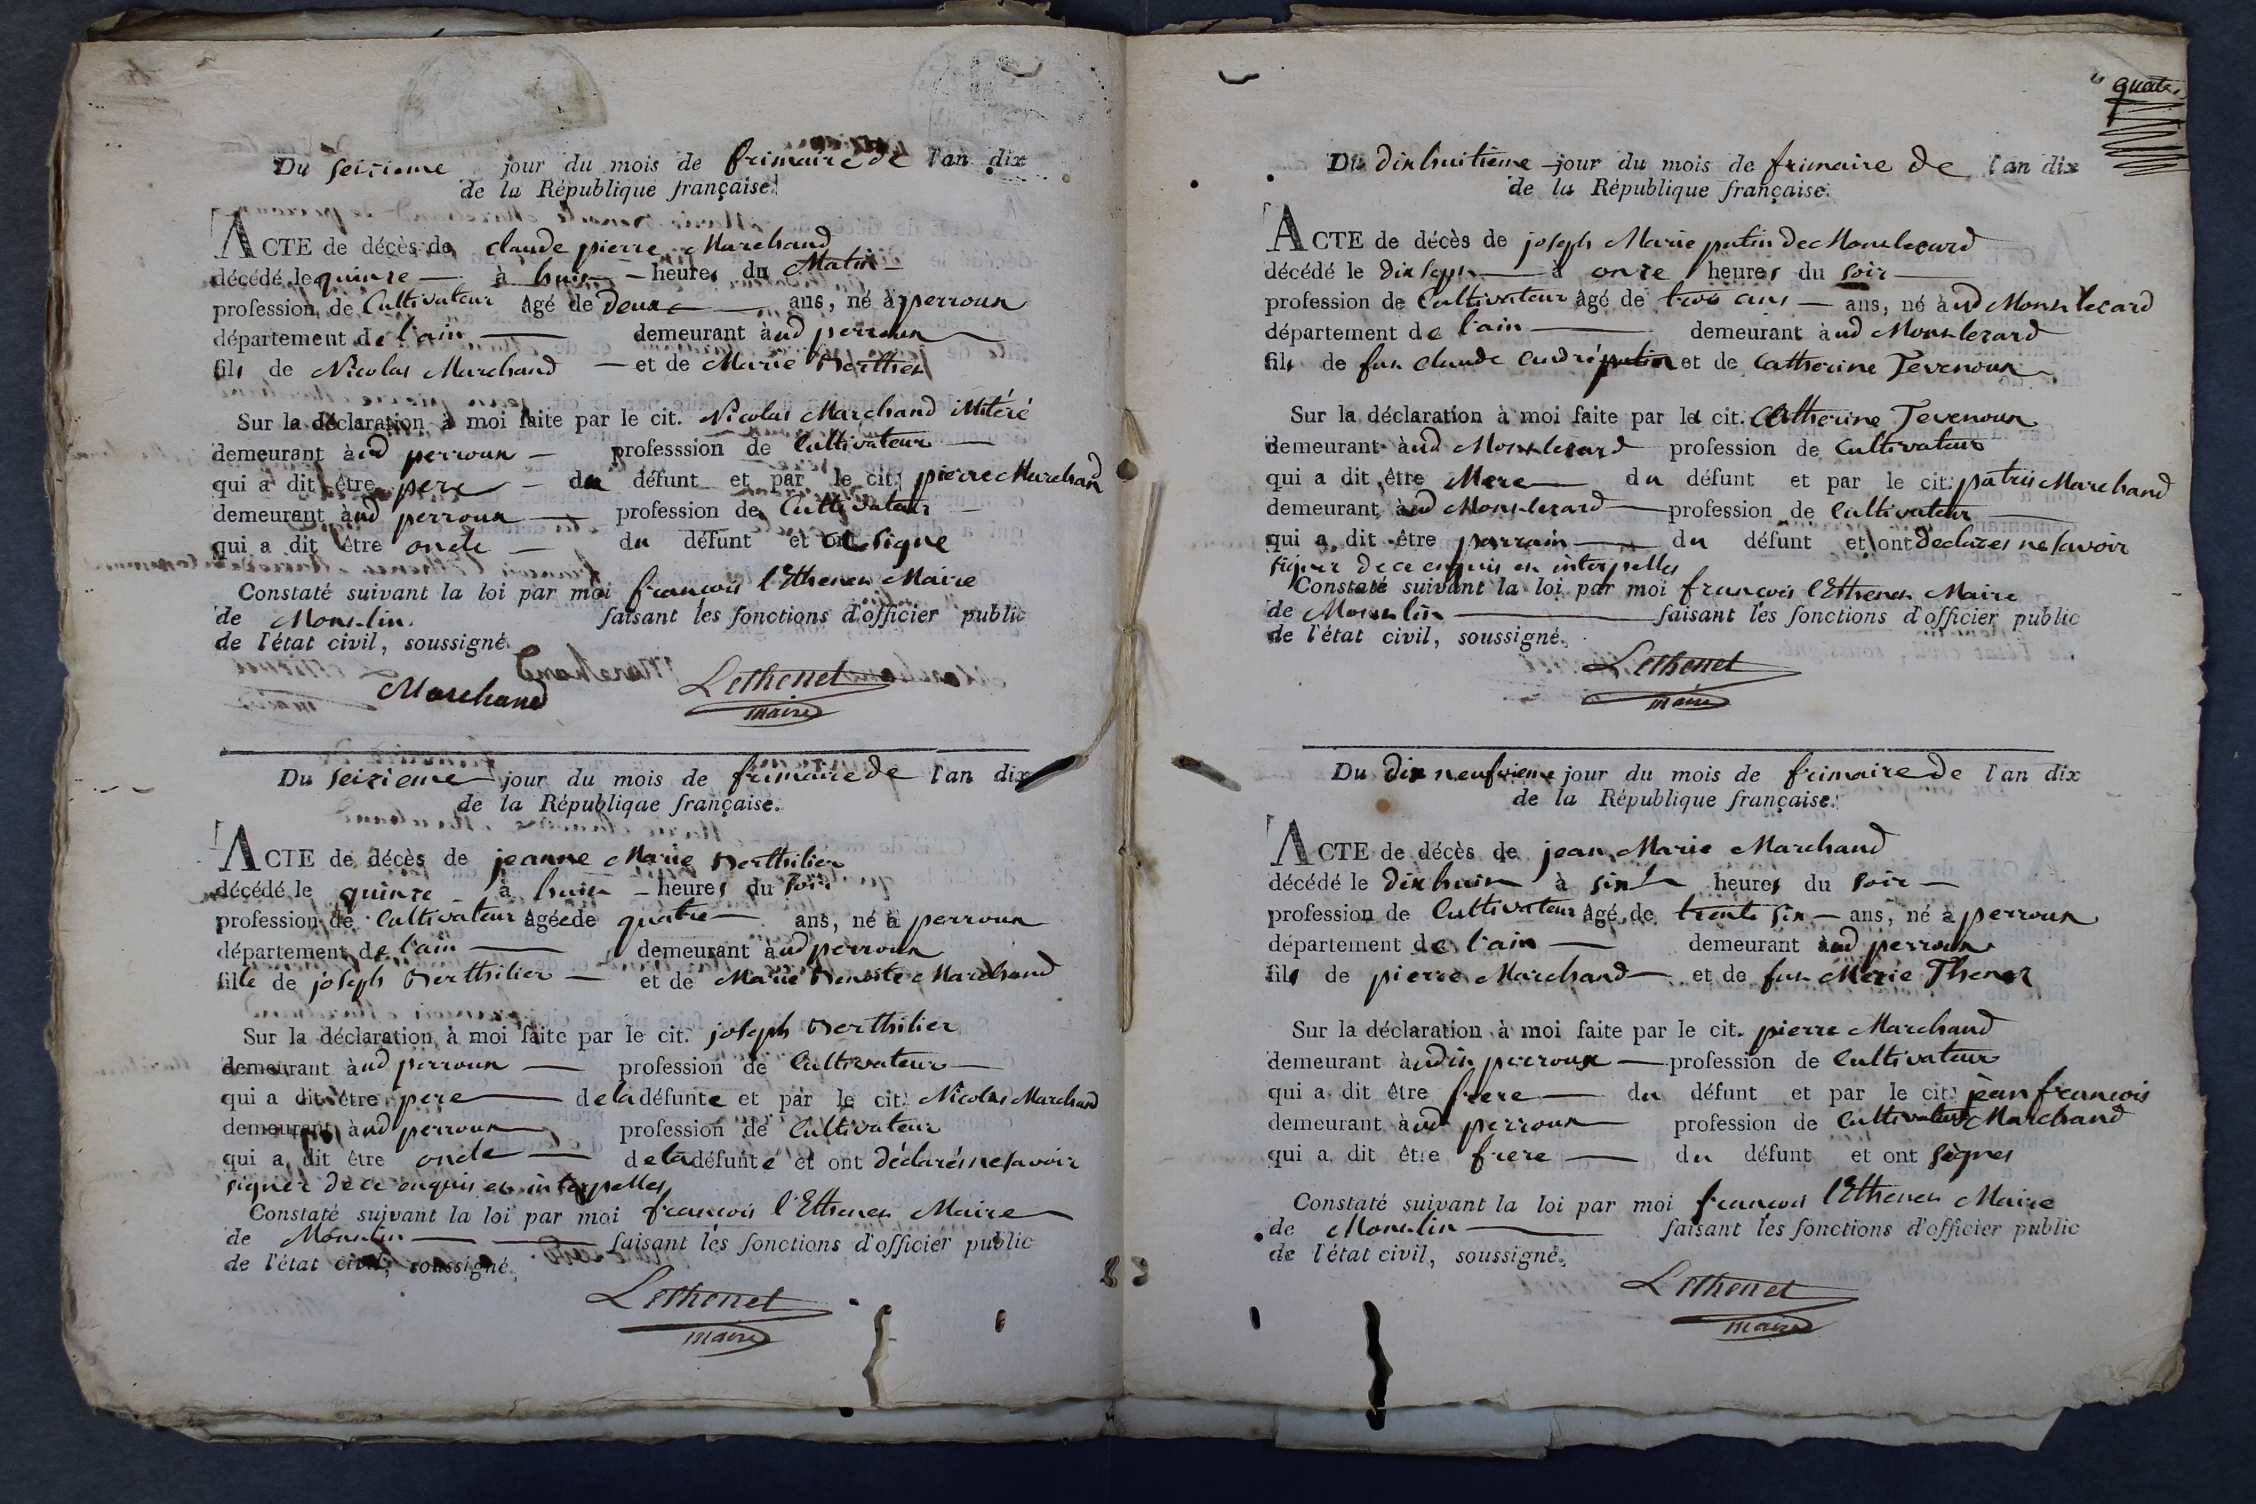 Du seizieme jour du mois de frimaire de l'an dix
de la République française.
ACTE de décès de claude pierre Marchand
décédé le quinze — à huit — heures du Matin —
profession de Cultivateur âgé de deux — ans, né à perroux
département de l'ain — demeurant à ud perroux —
fils de Nicolas Marchand — et de Marie Berthet
Sur la déclaration à moi faite par le cit. Nicolas Marchand
demeurant à ud perroux — professsion de Cultivateur —
qui a dit être pere — du défunt et par le cit. pierre Marchand
demeurant à ud perroux — profession de Cultivateur —
qui a dit être oncle — du défunt et ont signe
Constaté suivant la loi par moi francois l'Ethenet Maire
de Montlin faisant les fonctions d'officier public
de l'état civil, soussigné.
Marchand
Marchand
Lethenet
maire
Du seizieme jour du mois de frimaire de l'an dix
de la République française.
ACTE de décès de jeanne Marie Berthilier
décédé le quinze à huit — heures du soir
profession de Cultivateur âgée de quatre — ans, né à perroux
département de l'ain — demeurant à ud perroux
fille de joseph Berthilier — et de Marie Benoite Marchand
Sur la déclaration à moi faite par le cit. joseph Berthilier
demeurant à ud perroux — profession de Cultivateur —
qui a dit être pere — de la défunte et par le cit. Nicolas Marchand
demeurant à ud perroux profession de Cultivateur
qui a dit être oncle — de la défunte et ont déclarés ne savoir
signer de ce enquis et interpelles
Constaté suivant la loi par moi francois l'Ethenet Maire
de Montlin — faisant les fonctions d'officier public
de l'état civil, soussigné.
Lethenet
maire
quatr
Du dixhuitieme jour du mois de frimaire de l'an dix
de la République française.
ACTE de décès de joseph Marie putin de Montlezard
décédé le dix sept — à onze heures du soir —
profession de Cultivateur âgé de trois ans — ans, né à ud Montlezard
département de l'ain — demeurant à ud Montlezard
fils de fut claude andré putin et de Catherine Tevenoux
Sur la déclaration à moi faite par la cit. Catherine Tevenoux
demeurant à ud Montlezard profession de Cultivateur
qui a dit être Mere — du défunt et par le cit. patris Marchand
demeurant à ud Montlezard — profession de Cultivateur —
qui a dit être parrain — du défunt et ont declares ne savoir
signer de ce enquis et interpelles
Constaté suivant la loi par moi francois l'Ethenet Maire
de Montlin — faisant les fonctions d'officier public
de l'état civil, soussigné.
Lethenet
maire
Du dix neufvieme jour du mois de frimaire de l'an dix
de la République française.
ACTE de décès de jean Marie Marchand
décédé le dixhuit à six heures du soir —
profession de Cultivateur âgé de trente six — ans, né à perroux
département de l'ain — demeurant à ud perroux
fils de pierre Marchand — et de fut Marie Thenot
Sur la déclaration à moi faite par le cit. pierre Marchand
demeurant à udit perroux — profession de Cultivateur
qui a dit être frere — du défunt et par le cit. jean francois
demeurant à ud perroux — profession de Cultivateur Marchand
qui a dit être frere — du défunt et ont signes
Constaté suivant la loi par moi francois l'Ethenet Maire
de Montlin — faisant les fonctions d'officier public
de l'état civil, soussigné.
Lethenet
maire